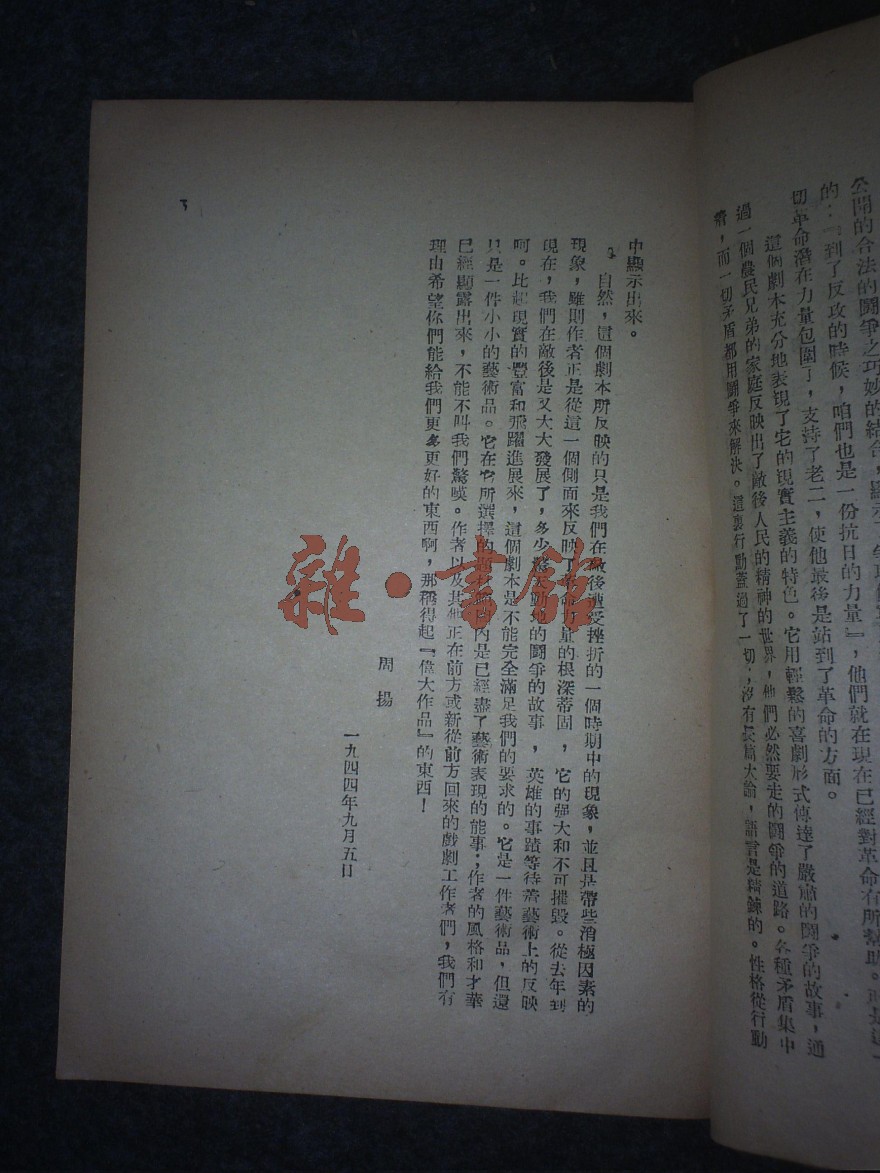 公開的合法的鬪爭之巧妙的結合，
的：『到了反攻的時候，咱們也是一份抗日的力量』，他們就在現在已經對革命有所幫助。
切革命潛在力量包圍了，支持了老二，使他最後是站到了革命的方面。
這個劇本充分地表現了它的現實主義的特色。它用輕鬆的喜劇形式傳達了嚴肅的鬪爭的故事，通
過一個農民兄弟的家庭反映出了敵後人民的精神的世界，他們必然要走的鬪爭的道路。各種矛盾集中
着，而一切矛盾都用鬪爭來解決。這裏行動蓋過了一切；沒有長篇大論，語言是精鍊的。性格從行動
中顯示出來。
自然，這個劇本所反映的只是我們在敵後遭受挫折的一個時期中的現象，並且是帶些消極因素的
現象，雖則作者正是從這一個側面來反映了革命力量的根深蒂固，它的强大和不可摧毀。從去年到
現在，我們在敵後是又大大發展了，多少驚天動地的鬪爭的故事，英雄的事蹟等待着藝術上的反映
呵。比起現實的豐富和飛躍進展來，這個劇本是不能完全滿足我們的要求的。它是一件藝術品，但還
只是一件小小的藝術品。它在它所選擇的題材範圍內是已經盡了藝術表現的能事；作者的風格和才華
已經顯露出來，不能不叫我們驚嘆。作者以及其他正在前方或新從前方回來的戲劇工作者們，我們有
理由希望你們能給我們更多更好的東西啊，那稱得起『偉大作品』的東西！
周揚
一九四四年九月五日
3
雜·書館